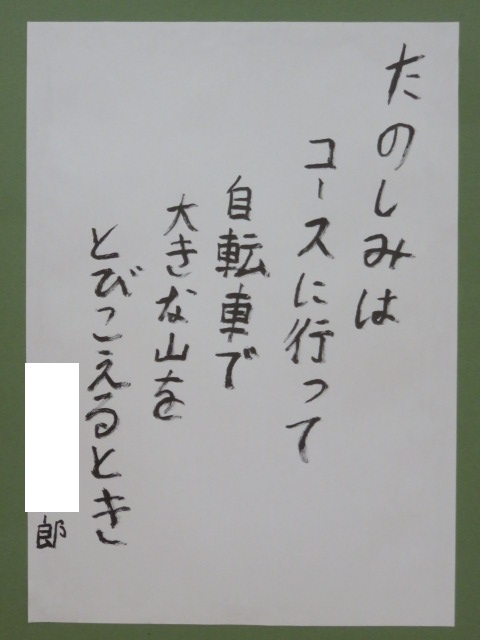 たのしみは
コースに行って
自転車で
大きな山を
とびこえるとき
郎